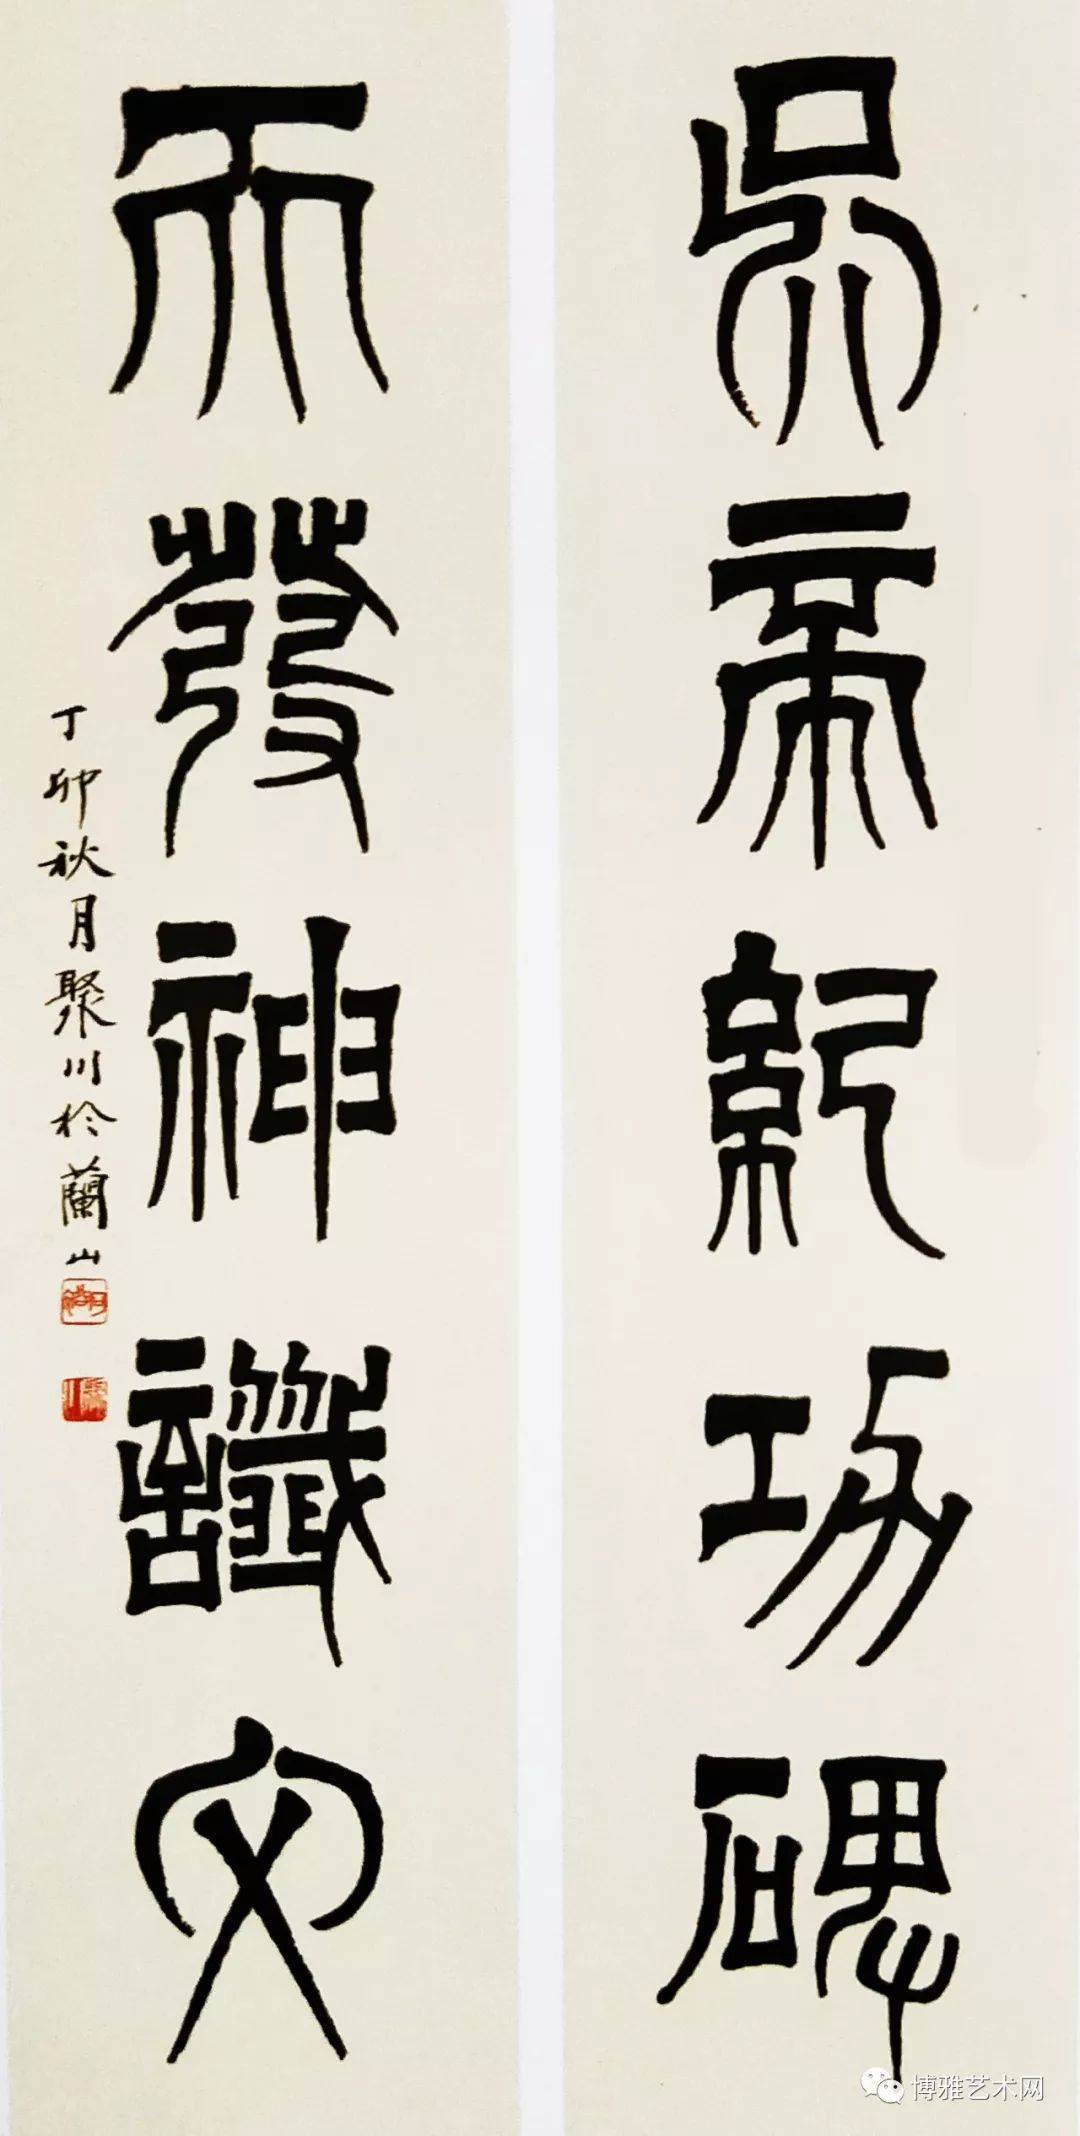 吴帝紀功碑
天發神讖文
丁卯秋月聚川於蘭山
博雅艺术网